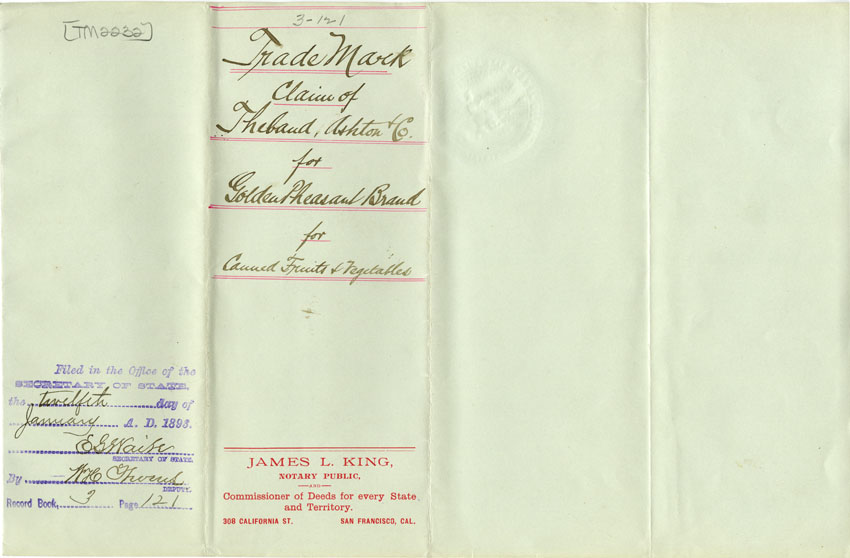 [TM2232]
Filed in the Office of the
SECRETARY OF STATE,
the twelfth day of
January A. D. 1893.
E G Waite
SECRETARY OF STATE.
By
DEPUTY.
Record Book, 3 Page 121
3-121
Trade Mark
Claim of
Thebaud, Ashton & C.
for
Golden Pheasant Brand
for
Canned Fruits & Vegetables
JAMES L. KING,
NOTARY PUBLIC,
—AND—
Commissioner of Deeds for every State
and Territory.
308 CALIFORNIA ST. SAN FRANCISCO, CAL.